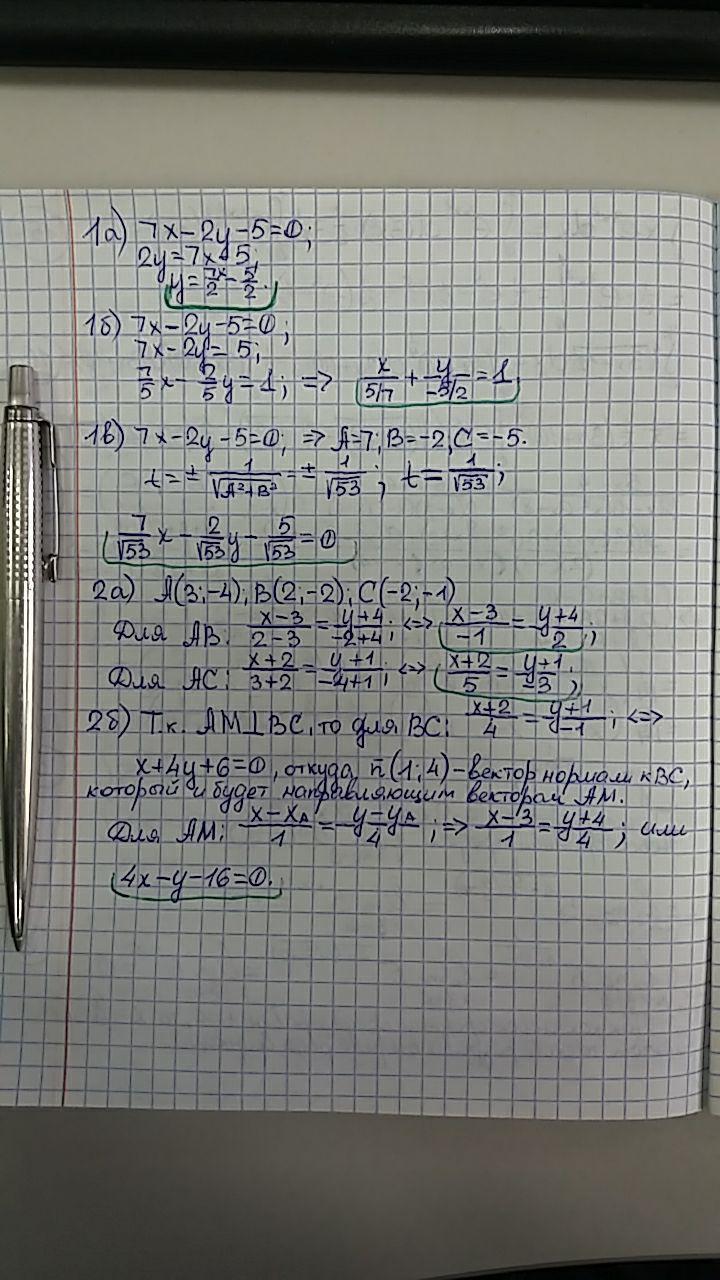 1а) 7x-2y-5=0;
2y=7x-5,
y=7x/2-5/2.
1б) 7x-2y-5=0;
7x-2y=5;
7/5x-2/5y=1; => x/(5/7)+y/(-5/2)=1,
1в) 7x-2y-5=0; => A=7; B=-2, C=-5.
t=±1/√(A²+B²)=±1/√53; t=1/√53;
7/√53x-2/√53y-5/√53=0
2а) A(3;-4); B(2;-2); C(-2;-1)
Для AB: (x-3)/(2-3)=(y+4)/(-2+4); <=> (x-3)/(-1)=(y+4)/2;
Для AC: (x+2)/(3+2)=(y+1)/(-4+1); <=> (x+2)/5=(y+1)/(-3);
2б) Т.к. AM⊥BC, то для BC: (x+2)/4=(y+1)/(-1); <=>
x+4y+6=0, откуда n̄(1;4)-вектор нормали к BC,
который и будет направляющим вектором AM.
Для AM: (x-x_A)/1=(y-y_A)/4; => (x-3)/1=(y+4)/4; или
4x-y-16=0.